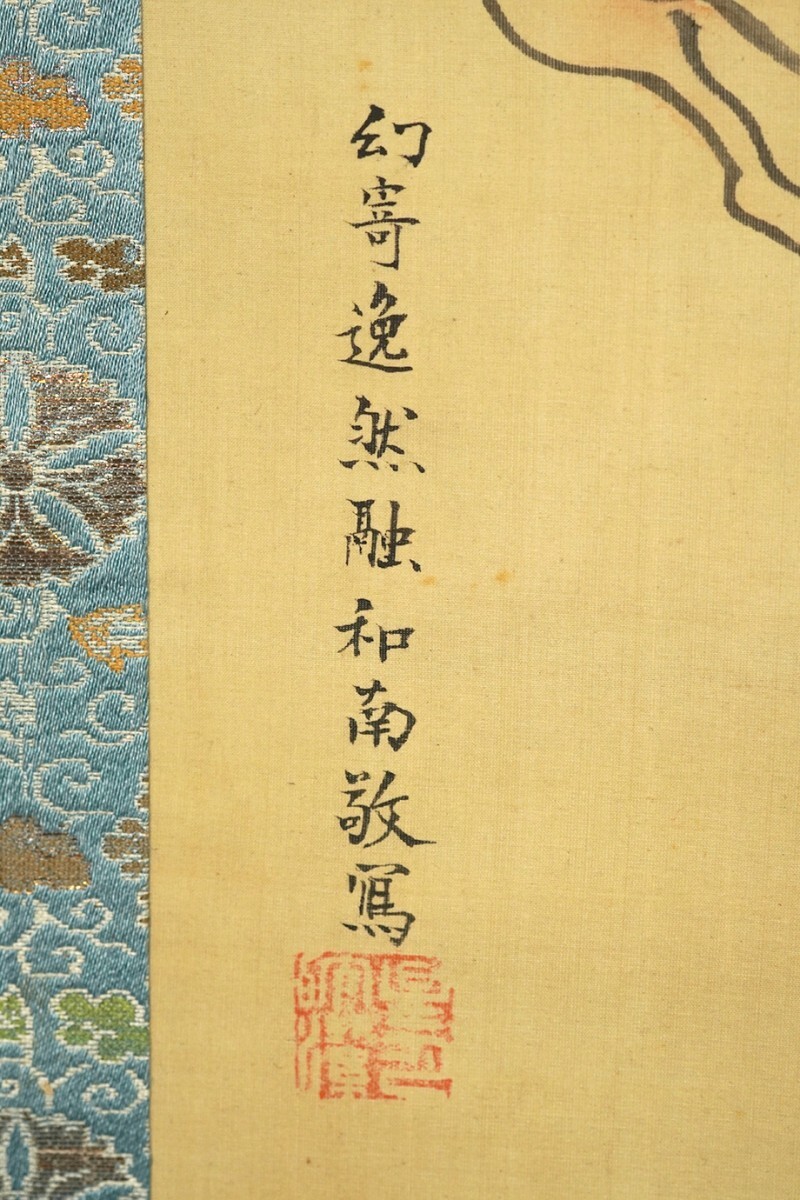 幻寄逸然融和南敬寫